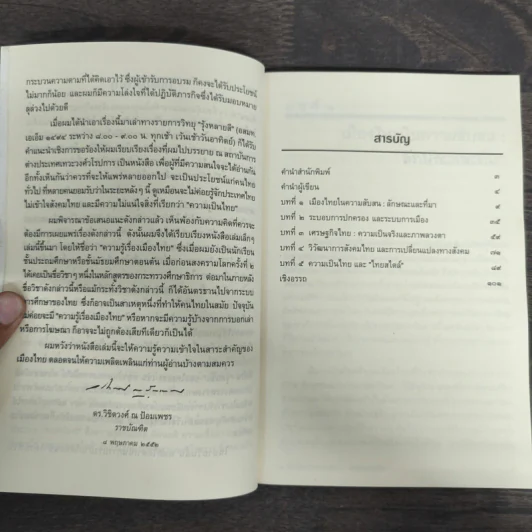 กระบวนความตามที่ได้คิดเอาไว้ ซึ่งผู้เข้ารับการอบรม ก็คงจะได้รับประโยชน์
ไม่มากก็น้อย และผมก็มีความโล่งใจที่ได้ปฏิบัติภารกิจซึ่งได้รับมอบหมาย
ลุล่วงไปด้วยดี
เมื่อผมได้นำเอาเรื่องนี้มาเล่าทางรายการวิทยุ "รุ้งหลายสี" (อสมท.
เอเอ็ม ๑๔๙๔ ระหว่าง ๘.๐๐ - ๙.๐๐ น. ทุกเช้า เว้นเช้าวันอาทิตย์) ก็ได้รับ
คำแนะนำเชิงการขอร้องให้ผมเรียบเรียงเรื่องที่ผมไปบรรยาย ณ สถาบันการ
ต่างประเทศเทวะวงศ์วโรปการ เป็นหนังสือ เพื่อผู้ที่มีความสนใจจะได้อ่านกัน
อีกทั้งเห็นกันว่าควรที่จะให้แพร่หลายออกไป จะเป็นประโยชน์แก่คนไทย
ทั่วไป ที่หลายคนยอมรับว่าในระยะหลังๆ นี้ ดูเหมือนจะไม่ค่อยรู้จักประเทศไทย
ไม่เข้าใจสังคมไทย และมีความไม่แน่ใจสิ่งที่เรียกว่า "ความเป็นไทย"
ผมพิจารณาข้อเสนอแนะดังกล่าวแล้ว เห็นพ้องกับความคิดที่ควรจะ
ต้องมีการเผยแพร่เรื่องดังกล่าวนี้ ดังนั้นผมจึงได้เรียบเรียงหนังสือเล่มเล็กๆ
เล่มนี้ขึ้นมา โดยให้ชื่อว่า "ความรู้เรื่องเมืองไทย" ซึ่งเมื่อผมยังเป็นนักเรียน
ชั้นประถมศึกษาหรือชั้นมัธยมศึกษาตอนต้น เมื่อก่อนสงครามโลกครั้งที่ ๒
ได้เคยเป็นชื่อวิชาๆ หนึ่งในหลักสูตรของกระทรวงศึกษาธิการ ต่อมาในภายหลัง
ชื่อวิชาดังกล่าวนี้หรือแม้กระทั่งวิชาดังกล่าวนี้ ก็ได้อันตรธานไปจากระบบ
การศึกษาของไทย ซึ่งก็อาจเป็นสาเหตุหนึ่งที่ทำให้คนไทยในสมัย ปัจจุบัน
ไม่ค่อยจะมี "ความรู้เรื่องเมืองไทย" หรือหากจะมีความรู้บ้างจากการบอกเล่า
หรือการโฆษณา ก็อาจจะไม่ถูกต้องเสียทีเดียวก็เป็นได้
ผมหวังว่าหนังสือเล่มนี้จะให้ความรู้ความเข้าใจในสาระสำคัญของ
เมืองไทย ตลอดจนให้ความเพลิดเพลินแก่ท่านผู้อ่านบ้างตามสมควร
ดร.วิชิตวงศ์ ณ ป้อมเพชร
ราชบัณฑิต
๘ พฤษภาคม ๒๕๕๒
สารบัญ
คำนำสำนักพิมพ์ ๓
คำนำผู้เขียน ๔
บทที่ ๑ เมืองไทยในความสับสน : ลักษณะและที่มา ๙
บทที่ ๒ ระบอบการปกครอง และระบบการเมือง ๓๕
บทที่ ๓ เศรษฐกิจไทย : ความเป็นจริงและภาพลวงตา ๕๙
บทที่ ๔ วิวัฒนาการสังคมไทย และการเปลี่ยนแปลงทางสังคม ๗๒
บทที่ ๕ ความเป็นไทย และ "ไทยสไตล์"
เชิงอรรถ ๑๐๒